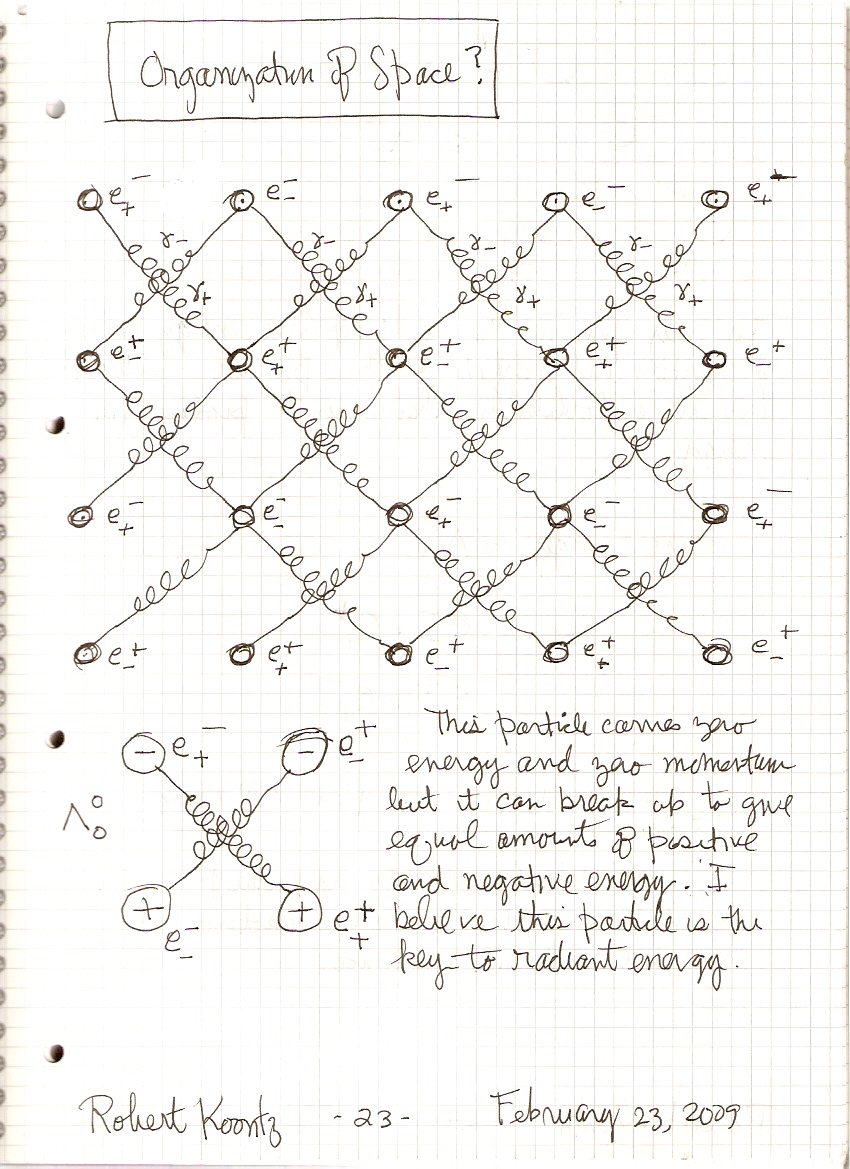 Organization of Space?
e₊⁻ e₋⁻ e₊⁻ e₋⁻ e₊⁺
γ- γ- γ- γ-
γ+ γ+ γ+ γ+
e₋⁺ e₊⁺ e₋⁺ e₊⁺ e₋⁺
e₊⁻ e₋⁻ e₊⁻ e₋⁻ e₊⁻
e₋⁺ e₊⁺ e₋⁺ e₊⁺ e₋⁺
− e₊⁻ − e₋⁺
Λ₀⁰
+ e₋⁻ + e₊⁺
This particle carries zero
energy and zero momentum
but it can break up to give
equal amounts of positive
and negative energy. I
believe this particle is the
key to radiant energy.
Robert Koontz - 23 - February 23, 2009